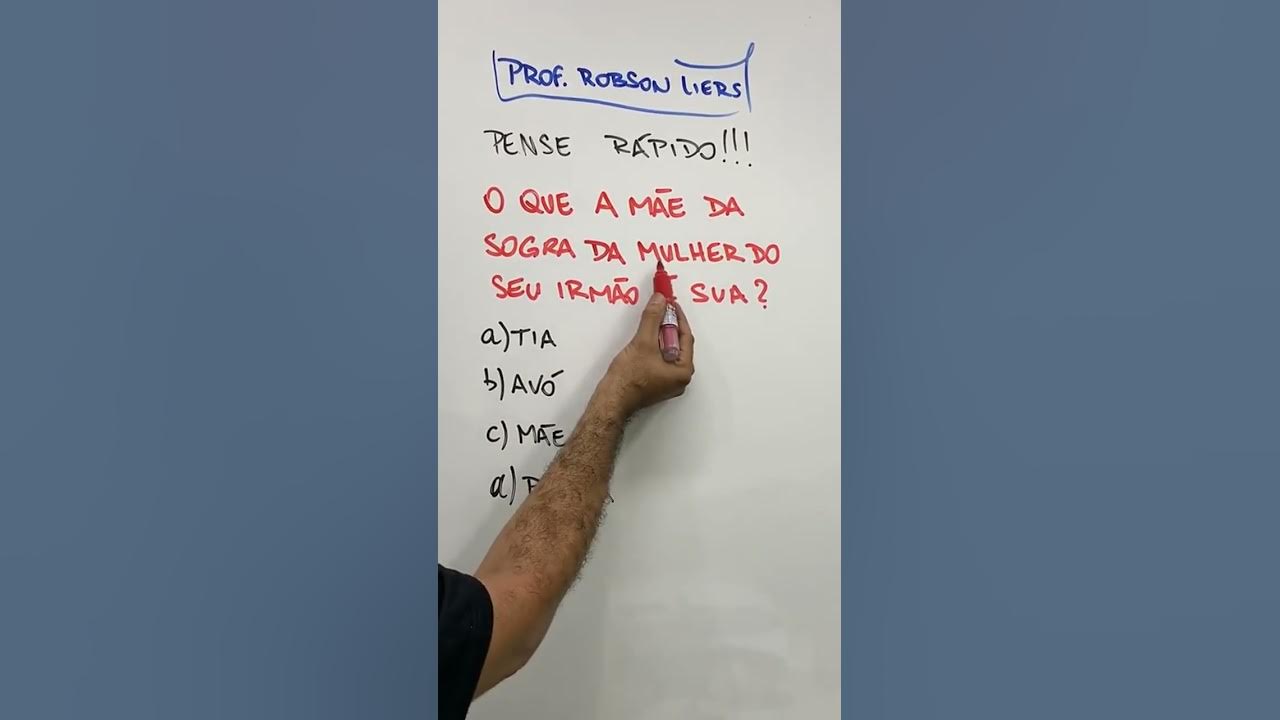 PROF. ROBSON LIERS
PENSE RÁPIDO!!!
O QUE A MÃE DA
SOGRA DA MULHER DO
SEU IRMÃO É SUA?
a) TIA
b) AVÓ
c) MÃE
d)